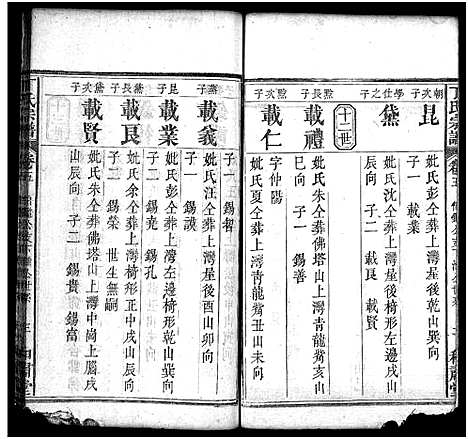 丁氏宗譜
卷五
朝次子
昆
妣氏沈仝葬上灣椅形左邊戌山
辰向 子一 載業
學仕之子
黛
妣氏彭仝葬上灣屋後乾山巽向
子二 載艮 載賢
十二世
黙長子
載禮
妣氏朱仝葬佛塔山上灣青龍觜亥山
巳向 子一 錫善
黙次子
載仁
字仲陽
妣氏夏仝葬上灣青龍觜丑山未向
子一 錫智
燕子
載義
妣氏汪仝葬上灣屋後酉山卯向
子一 錫謨
昆子
載業
妣氏彭仝葬上灣左邊椅形乾山巽向
子二 錫堯 錫孔
黛長子
載艮
妣氏余仝葬上灣椅形正中戌山辰向
子二 錫榮 世生無嗣
黛次子
載賢
妣氏朱仝葬佛塔山上灣中崗上腦戌
山辰向 子二 錫貴 錫富
氏宗譜
卷五
三